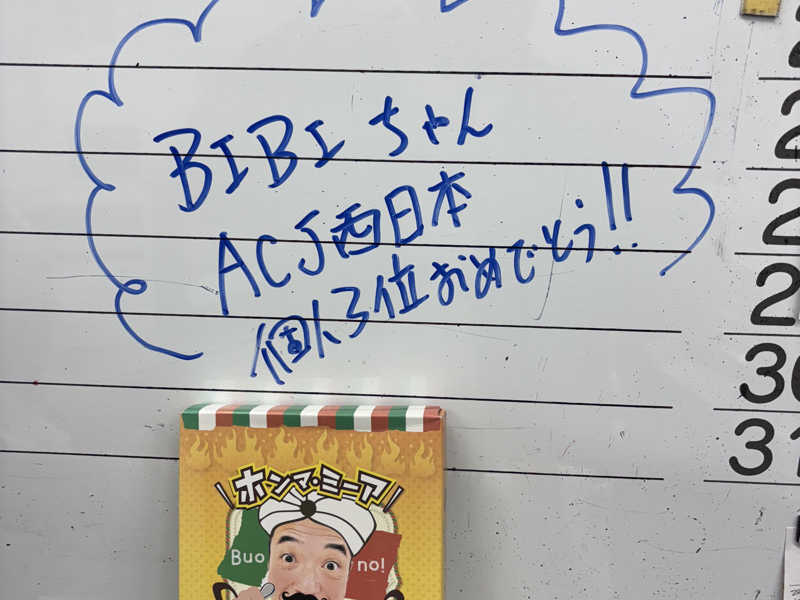 BIBI ちゃん
ACJ西日本
個人3位おめでとう!!
30
31
ホンマ・ミーア
Buo
no!